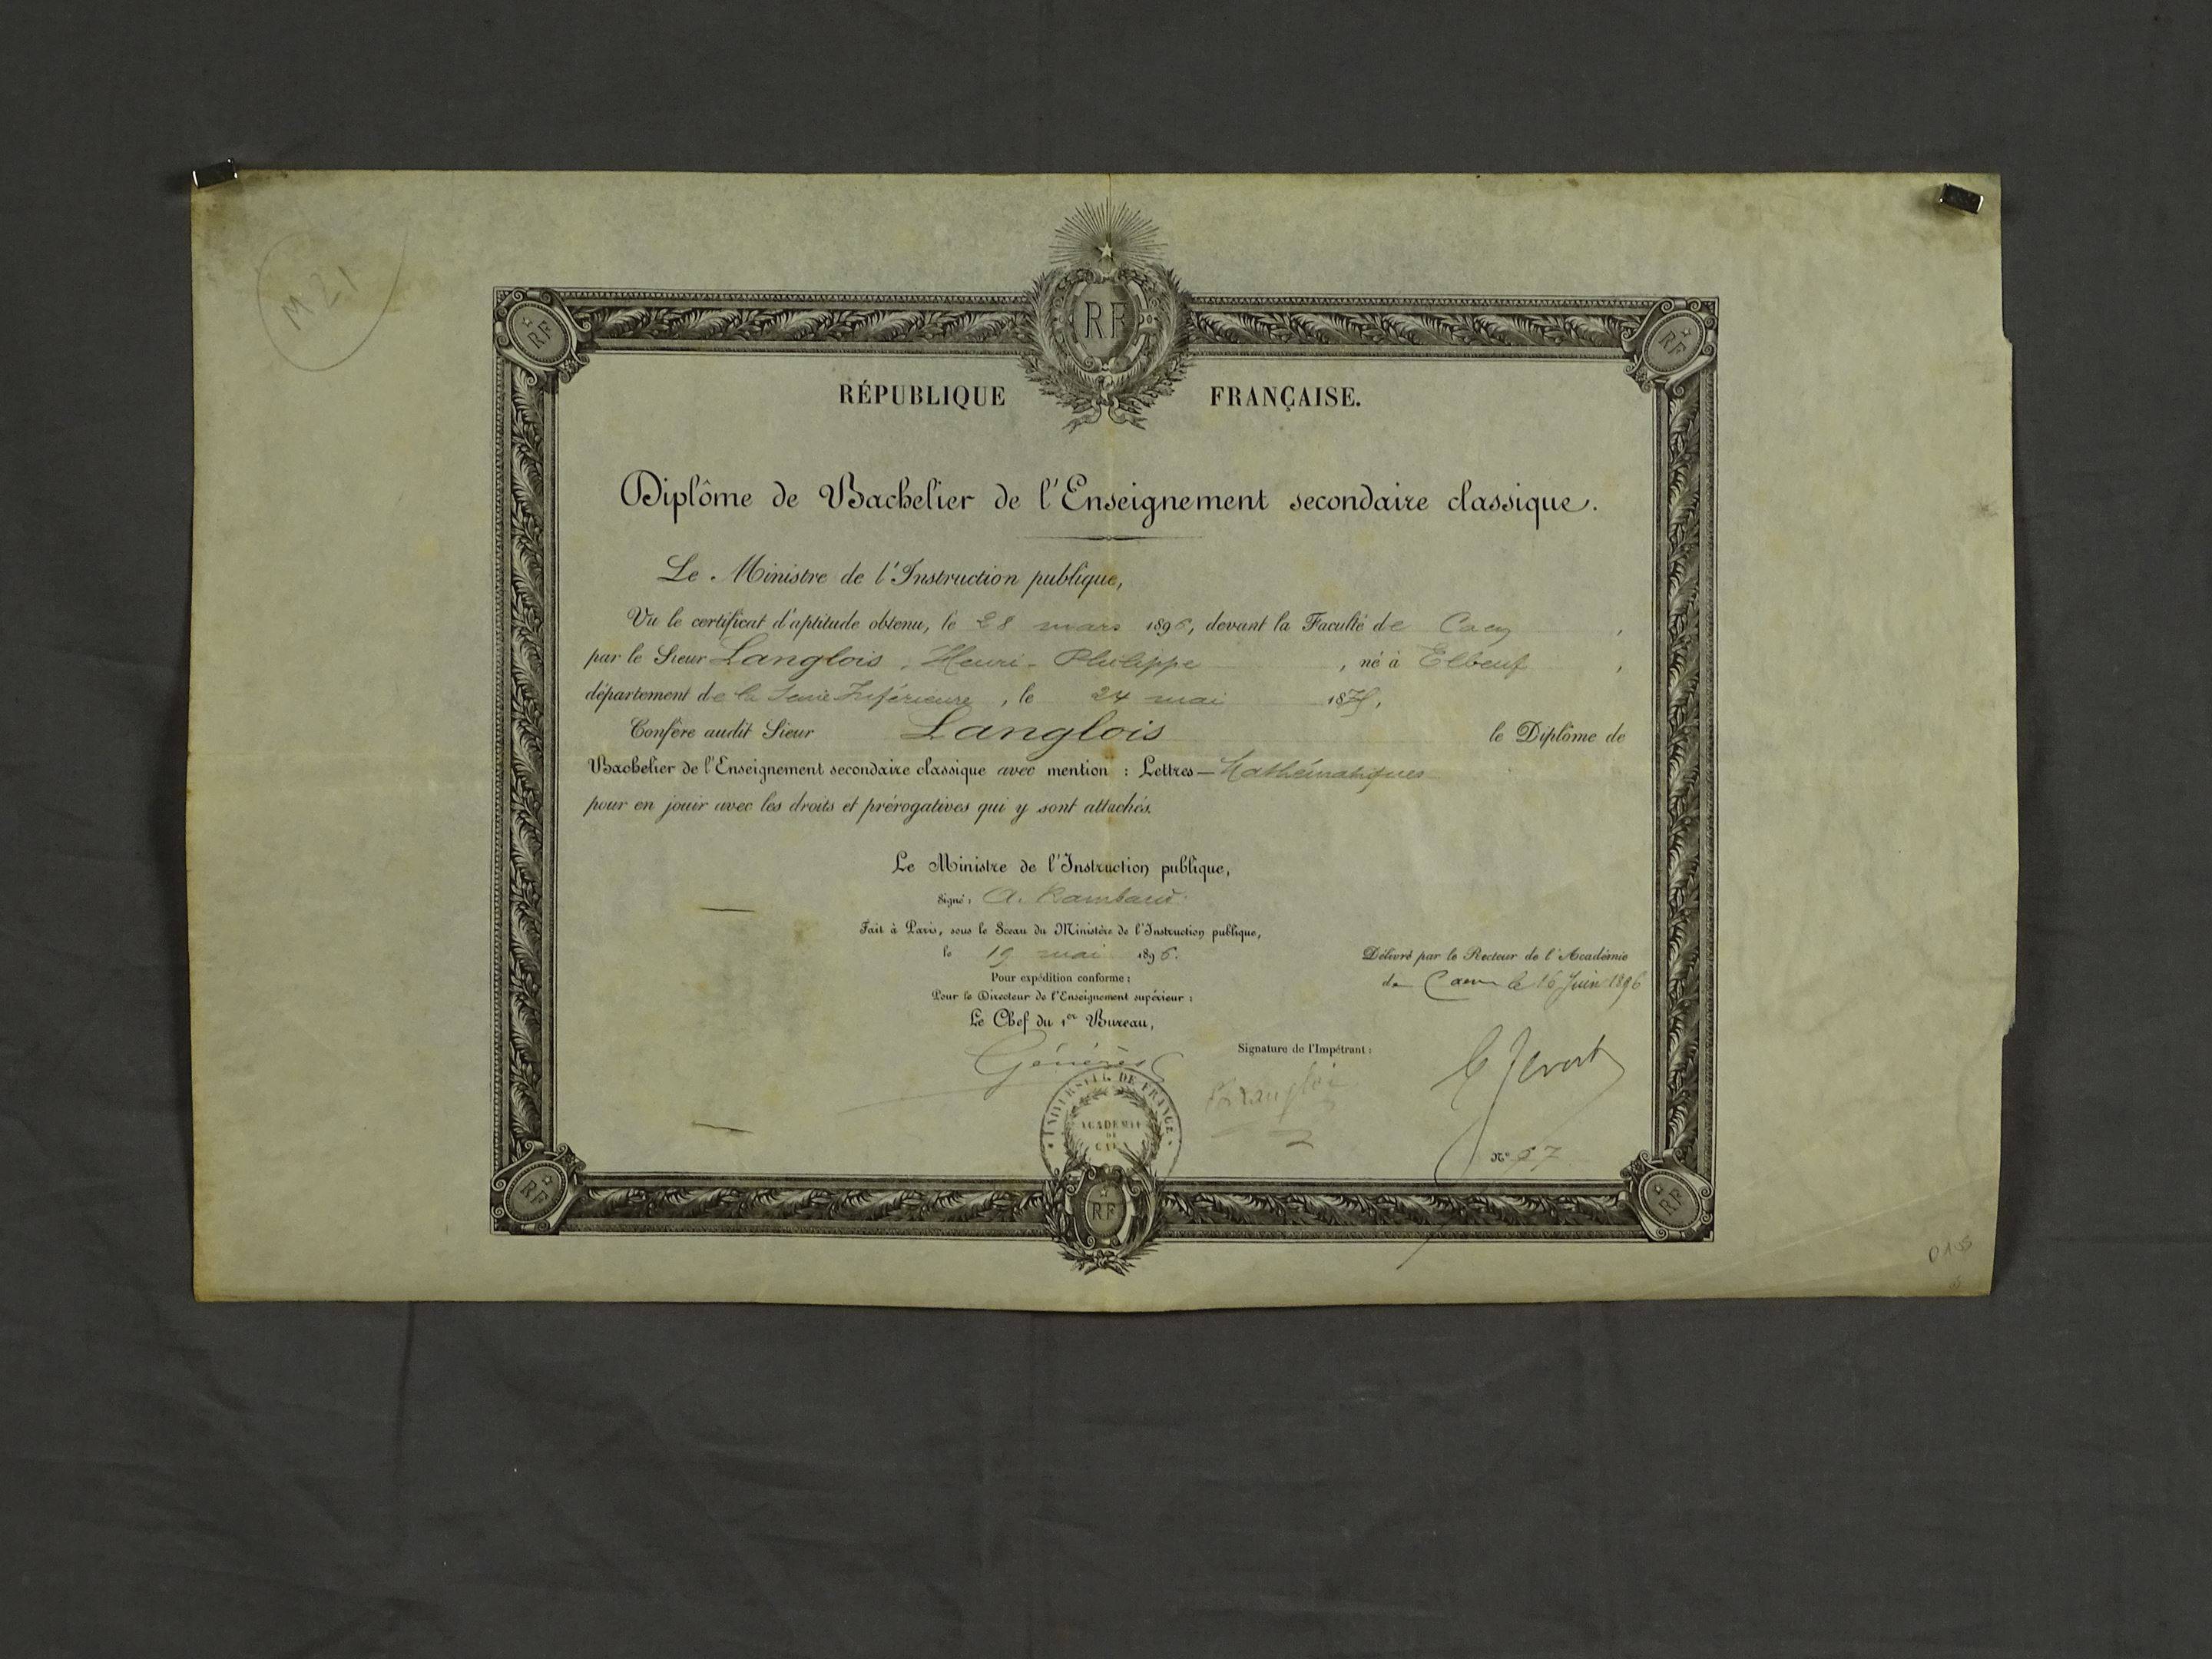 M 21
RF
RF
RF
RÉPUBLIQUE FRANÇAISE.
Diplôme de Bachelier de l'Enseignement secondaire classique.
Le Ministre de l'Instruction publique,
Vu le certificat d'aptitude obtenu, le 28 mars 1896, devant la Faculté de Caen,
par le Sieur Langlois, Henri-Philippe, né à Elbeuf,
département de la Seine Inférieure, le 24 mai
Confère audit Sieur Langlois le Diplôme de
Bachelier de l'Enseignement secondaire classique avec mention : Lettres-Mathématiques
pour en jouir avec les droits et prérogatives qui y sont attachés.
Le Ministre de l'Instruction publique,
Signé : A. Rambaud.
Fait à Paris, sous le Sceau du Ministère de l'Instruction publique,
le 19 mai 1896.
Pour expédition conforme :
Pour le Directeur de l'Enseignement supérieur :
Le Chef du 1er Bureau,
Délivré par le Recteur de l'Académie
de Caen le 16 Juin 1896
Signature de l'Impétrant :
UNIVERSITÉ DE FRANCE
ACADÉMIE
DE
Nº 67
RF
RF
RF